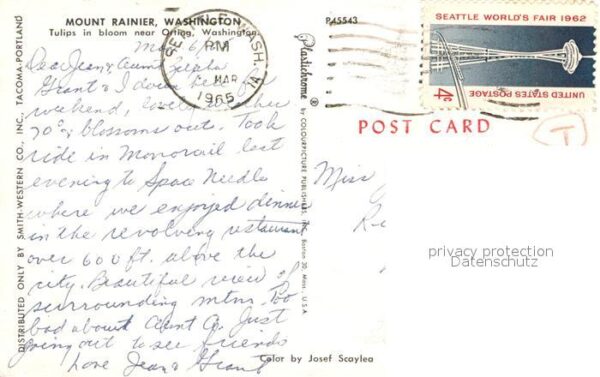 MOUNT RAINIER, WASHINGTON
Tulips in bloom near Orting, Washington
Dear Jean & Aunt
Grant & I down here for
weekend, lovely weather
70°, blossoms out. Took
ride in Monorail last
evening to Space Needle
where we enjoyed dinner
in the revolving restaurant
over 600 ft. above the
city. Beautiful view of
surrounding mtns. Too
bad about Aunt A. Just
going out to see friends
Love Jean & Grant
DISTRIBUTED ONLY BY SMITH-WESTERN CO., INC., TACOMA-PORTLAND
SE WASH.
PM
MAR
1965
P45543
Plastichrome ® by COLOURPICTURE PUBLISHERS, INC., Boston 30, Mass., U.S.A.
SEATTLE WORLD'S FAIR 1962
4c
UNITED STATES POSTAGE
POST CARD
T
Miss
privacy protection
Datenschutz
Color by Josef Scaylea